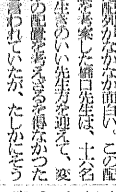 配列がなかなか面白い、この配
を考案した橋口先生は、十六名
生きのいい先生を迎えて、変
の配置を考えざるを得なかつた
言われていたが、たしかにそう